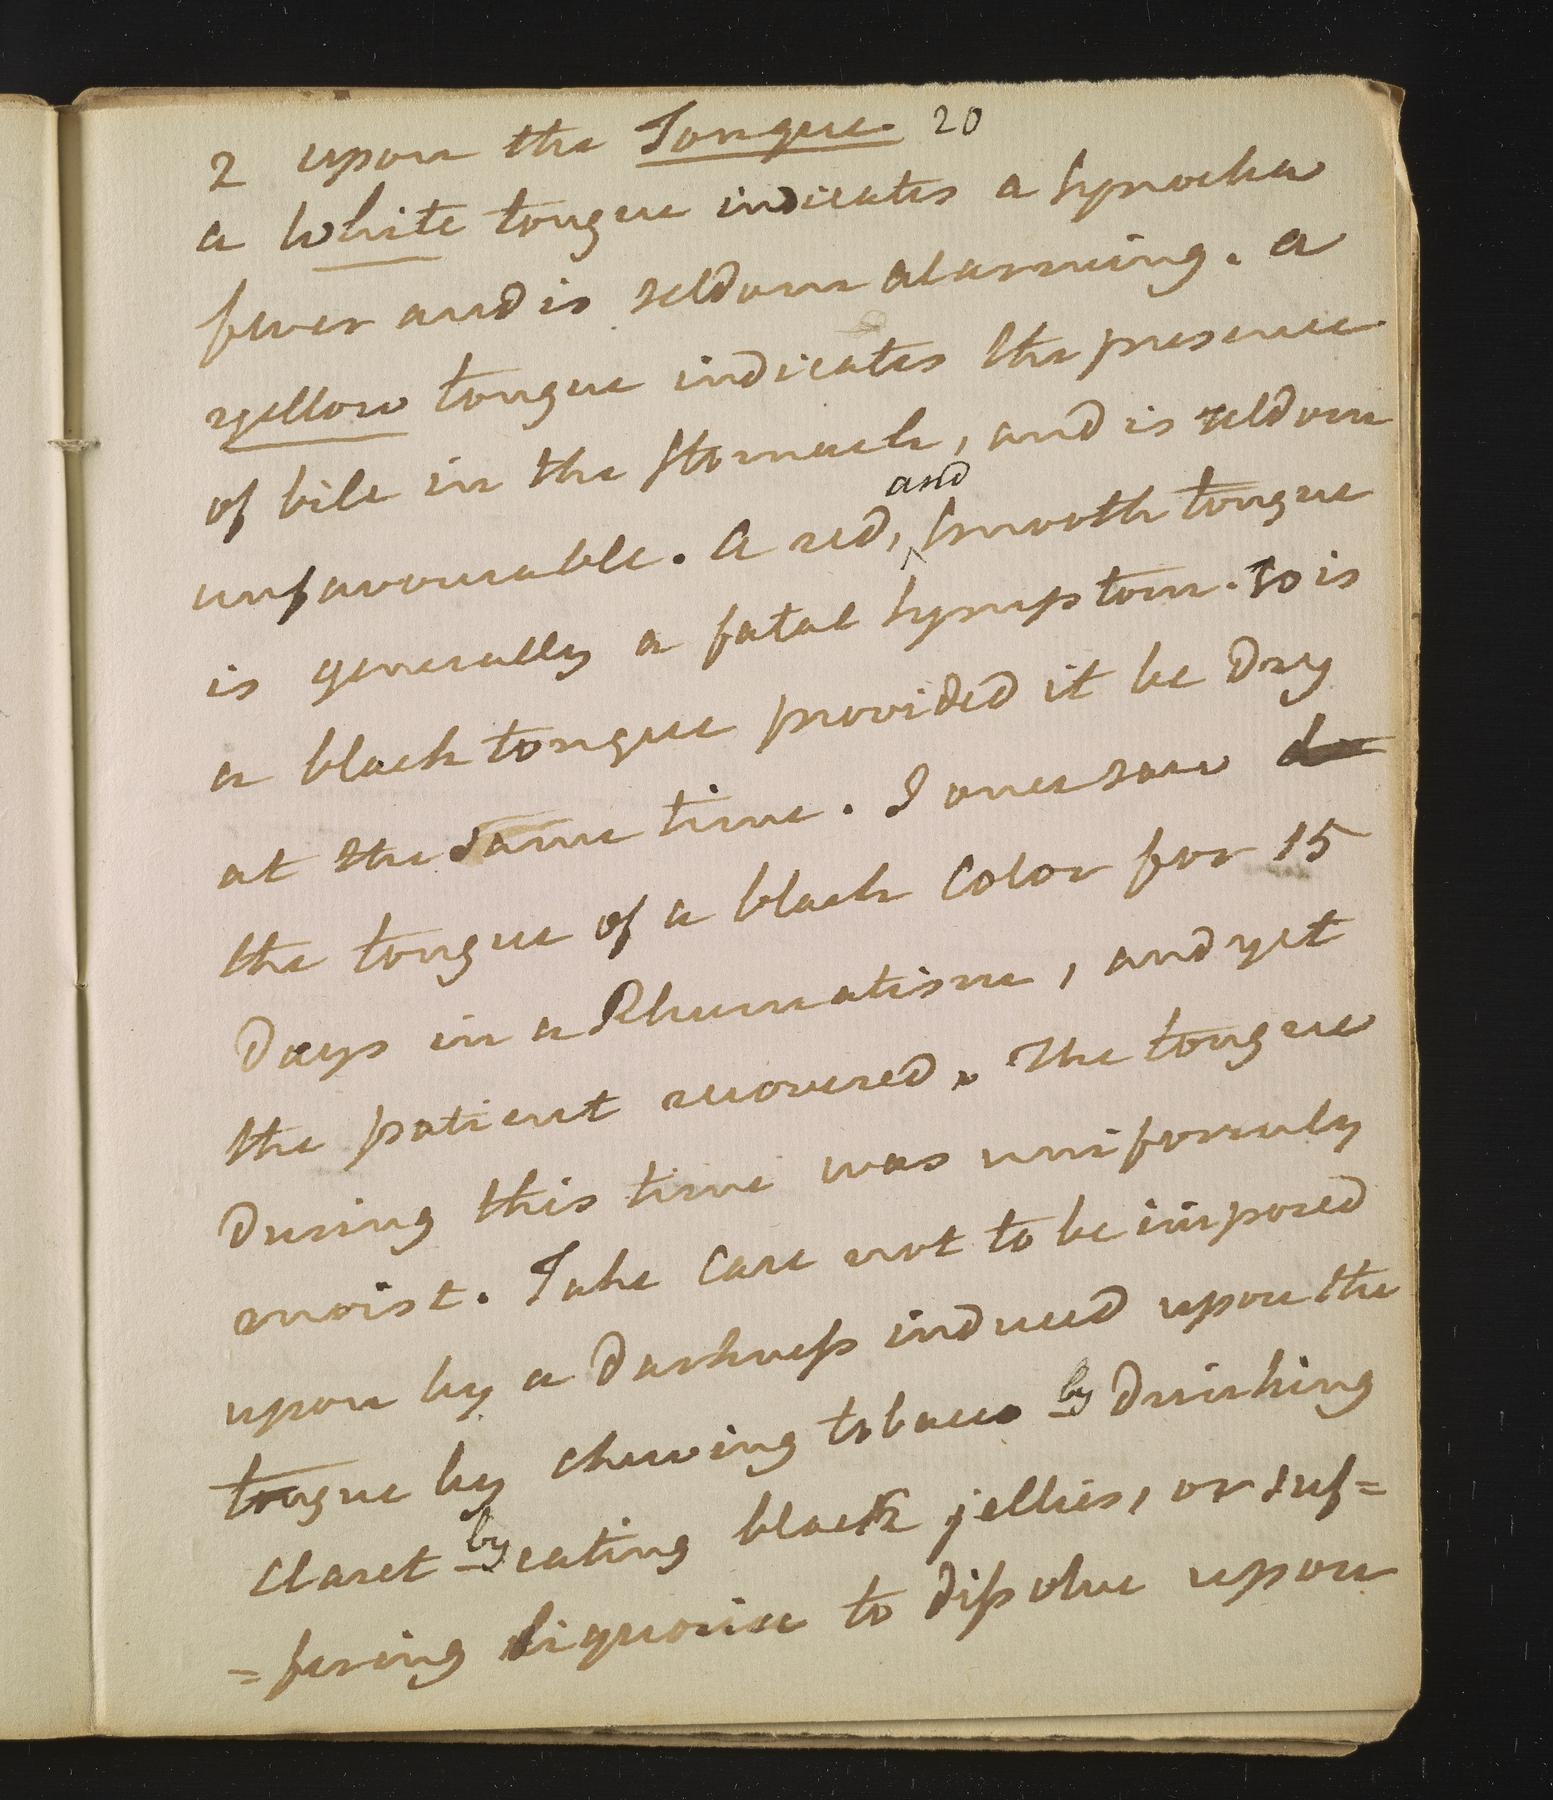 2 upon the Tongue. 20
a white tongue indicates a Synocha
fever and is seldom alarming. a
yellow tongue indicates the presence
of bile in the Stomach, and is seldom
unfavourable. A red, and smooth tongue
is generally a fatal symptom. So is
a black tongue provided it be dry
at the same time. I once saw
the tongue of a black Color for 15
days in a Rheumatism, and yet
the patient recovered. The tongue
during this time was uniformly
moist. Take care not to be imposed
upon by a darkness induced upon the
tongue by chewing tobacco by drinking
claret by eating black jellies, or suf=
=fering liquorice to dissolve upon